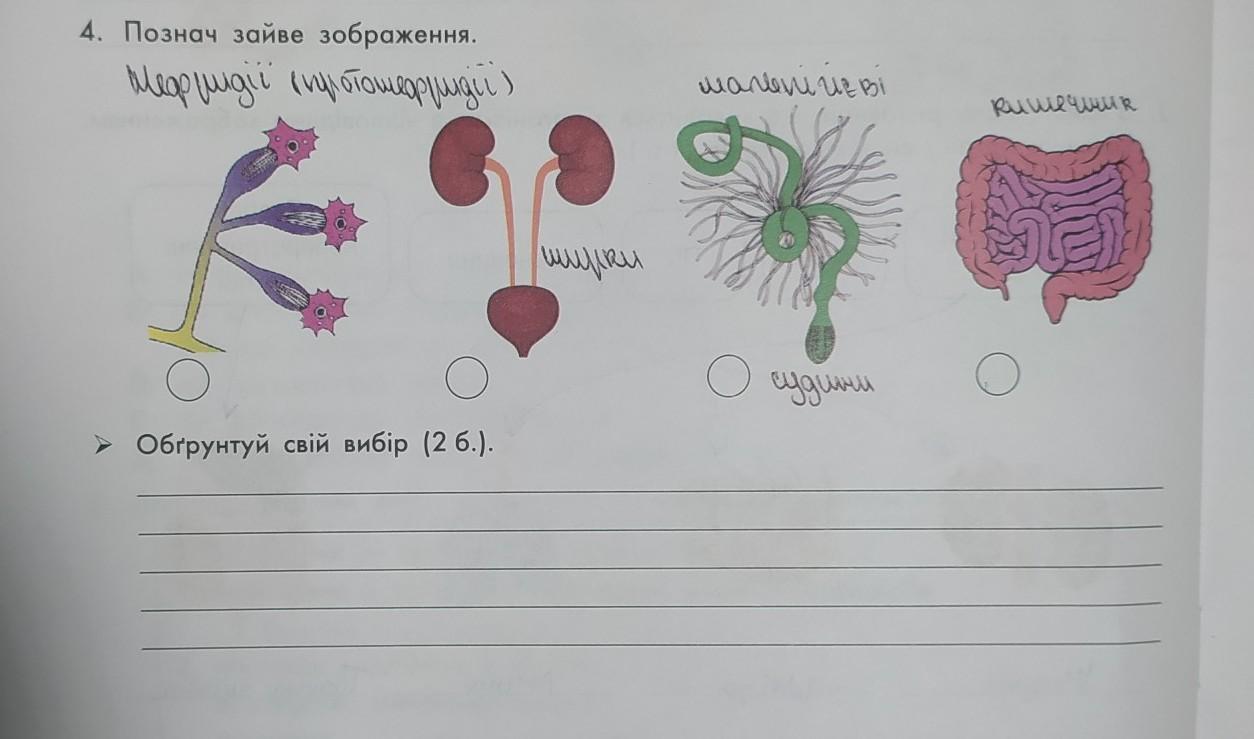 4. Познач зайве зображення.
Нефридії (протонефридії)
мальпігієві
кишечник
нирки
судини
➤ Обґрунтуй свій вибір (2 б.).